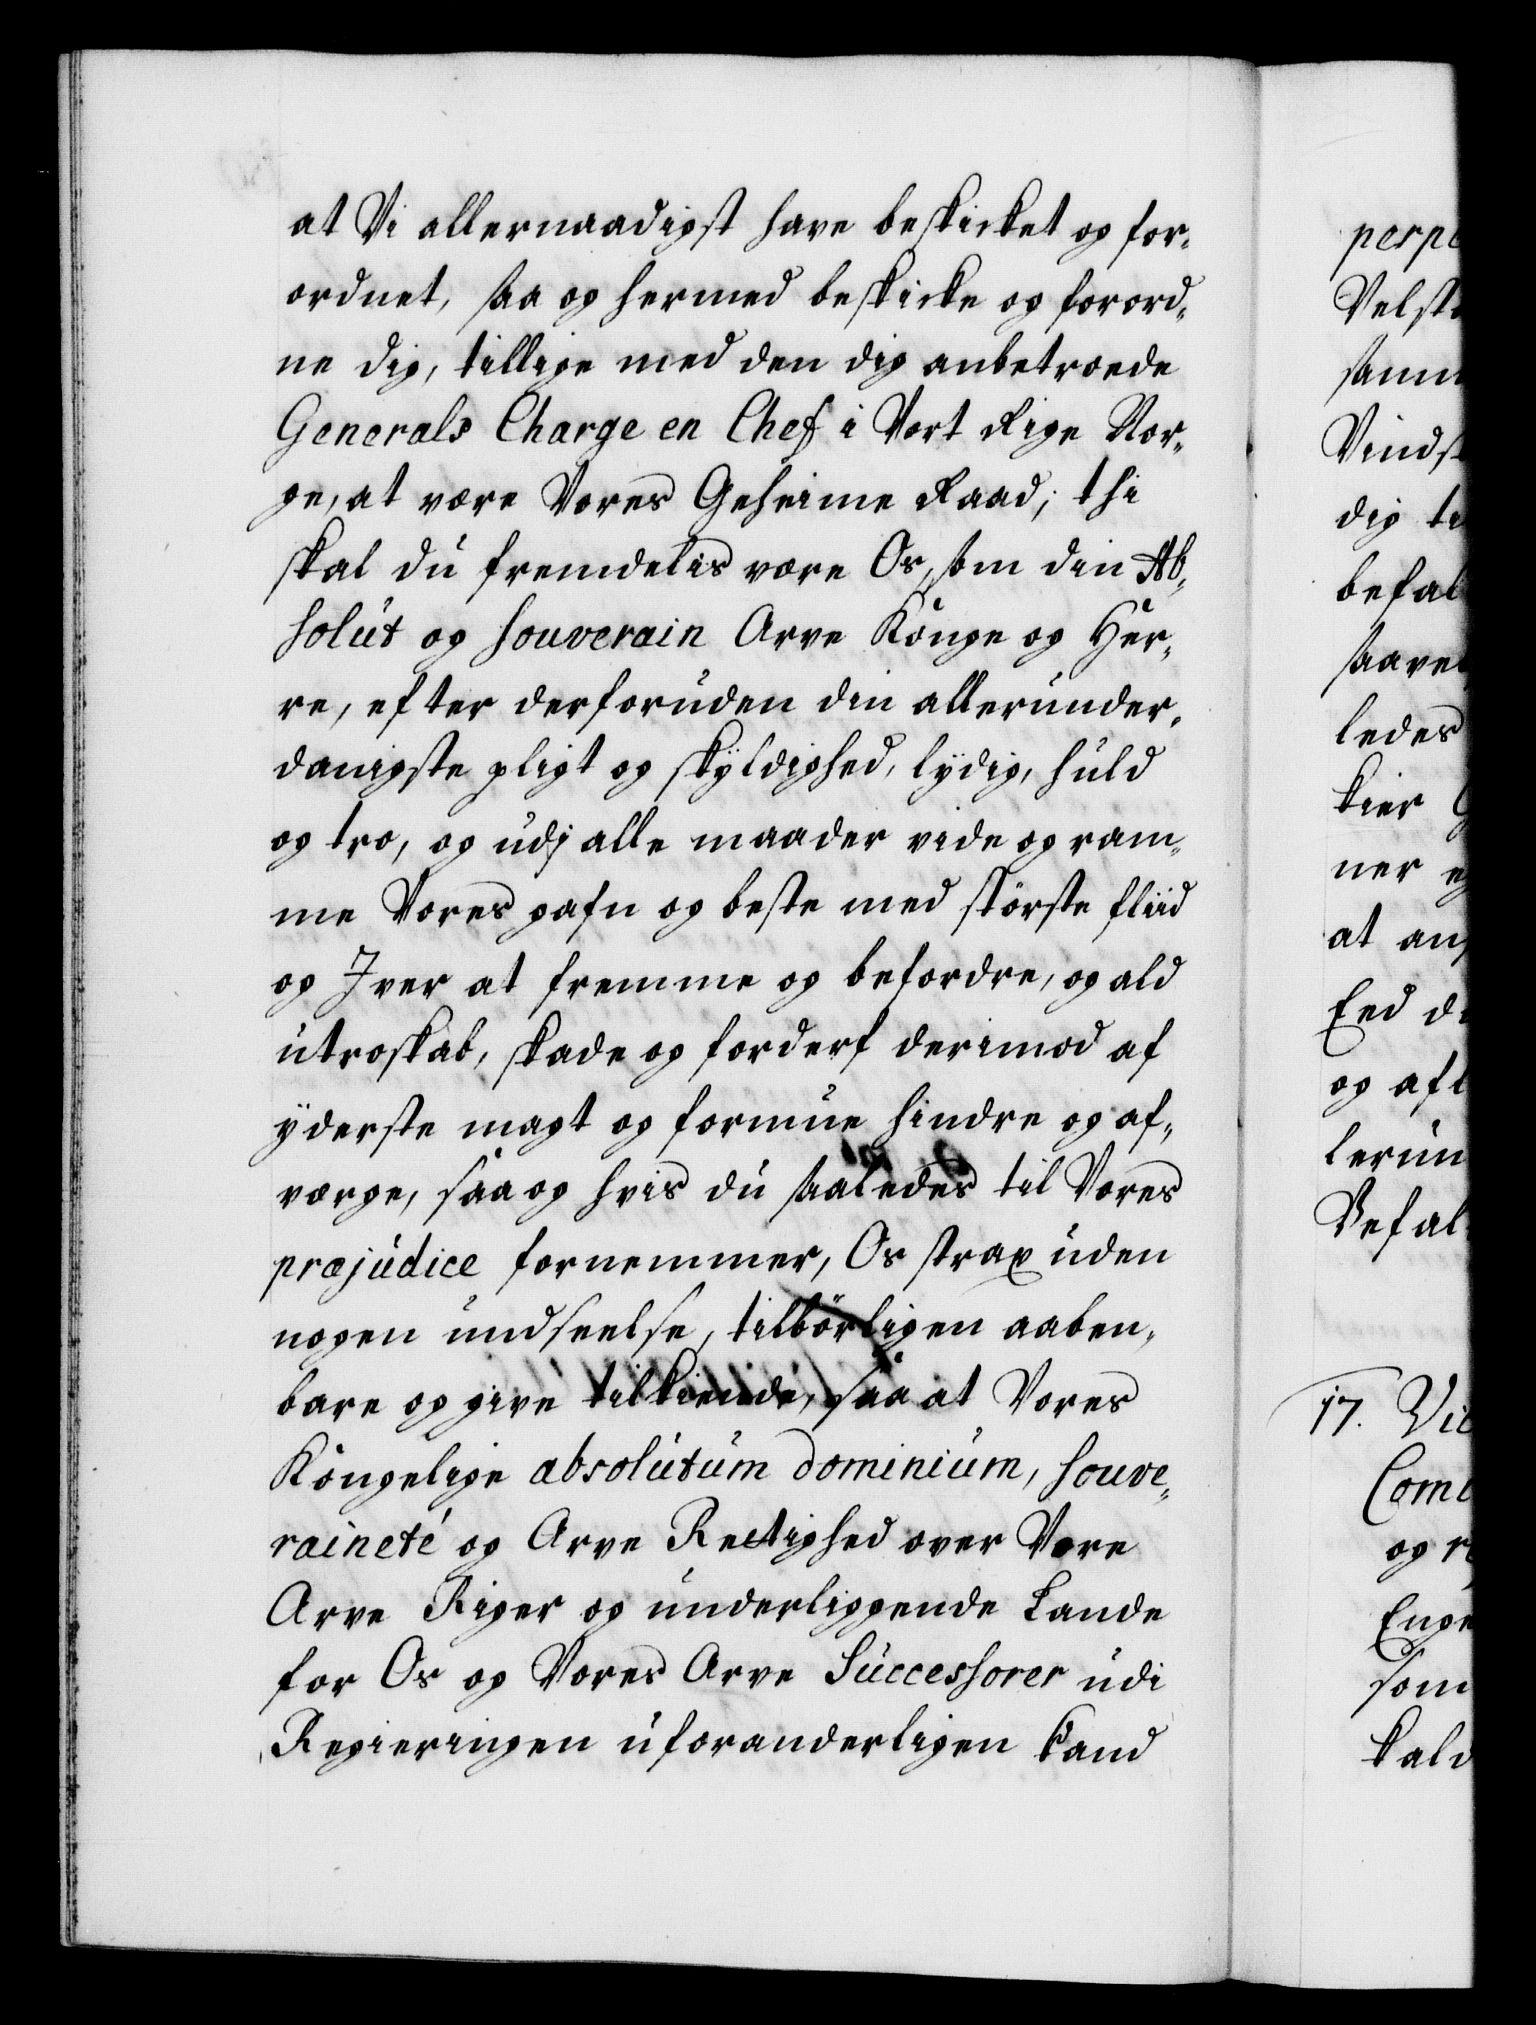 at Vi allernaadigst have beskicket og for-
ordnet, saa og hermed beskicke og forord-
ne dig, tillige med den dig anbetroede
Generals Charge en Chef i Vort Rige Nor-
ge, at være Vores Geheime Raad; thi
skal du fremdelis være Os, som din Ab-
solut og souverain Arve Konge og Her-
re, efter derforuden din allerunder-
danigste pligt og skyldighed, lydig, huld
og tro, og udj alle maader vide og ram-
me Vores gafn og beste med störste fliid
og Iver at fremme og befordre, og ald
utroskab, skade og forderf derimod af
yderste magt og formue hindre og af-
værge, saa og hvis du saaledes til Vores
præjudice fornemmer, Os strax uden
nogen undseelse, tilbörligen aaben-
bare og give tilkiende, saa at Vores
Kongelige absolutum dominium, souve-
raineté og Arve Rettighed over Vore
Arve Riger og underliggende Lande
for Os og Vores Arve Successorer udi
Regieringen uforanderligen kand
perpe
Velst
samm
Vinds
dig ti
befal
saavel
ledes
kier G
ner
at an
Eed d
og afl
lerun
Befal
17. Vic
Com
og r
Enge
som
kald